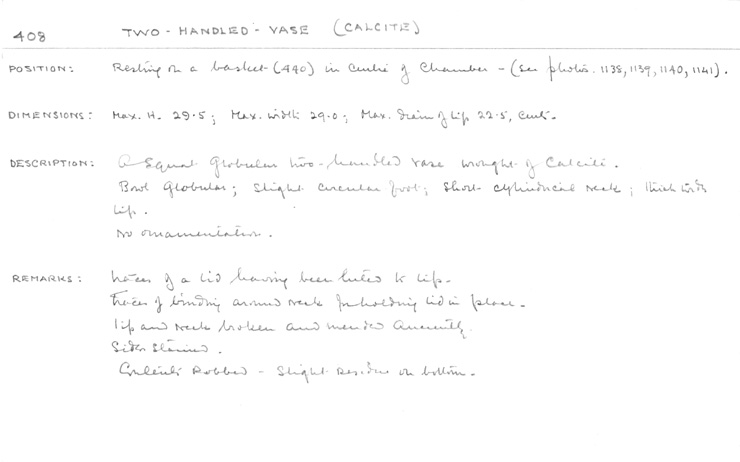 408 TWO-HANDLED-VASE (CALCITE)
POSITION: Resting on a basket (440) in centre of Chamber - (see photos. 1138, 1139, 1140, 1141).
DIMENSIONS: Max. H. 29.5; Max. width 29.0; Max. diam of lip 22.5, cent.
DESCRIPTION: A squat globular two-handled vase wrought of calcite.
Bowl globular; slight circular foot; short cylindrical neck; thick wide
lip.
No ornamentation.
REMARKS: traces of a lid having been luted to lip.
traces of binding around neck for holding lid in place.
lip and neck broken and mended anciently.
Sides stained.
Contents Robbed - slight residue on bottom.